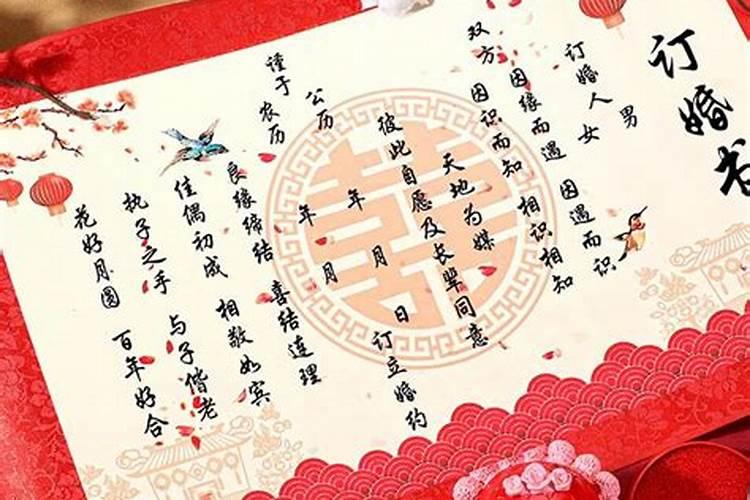 订婚书
订婚人 男
女
双方 因缘而遇 因遇而识
因识而知 相识相知
天地为媒
彼此自愿及长辈同意
谨于 公历 年 月 日 订立婚约
农历 年 月
良缘缔结 喜结连理
佳偶初成 相敬如宾
执子之手 与子偕老
花好月圆 百年好合